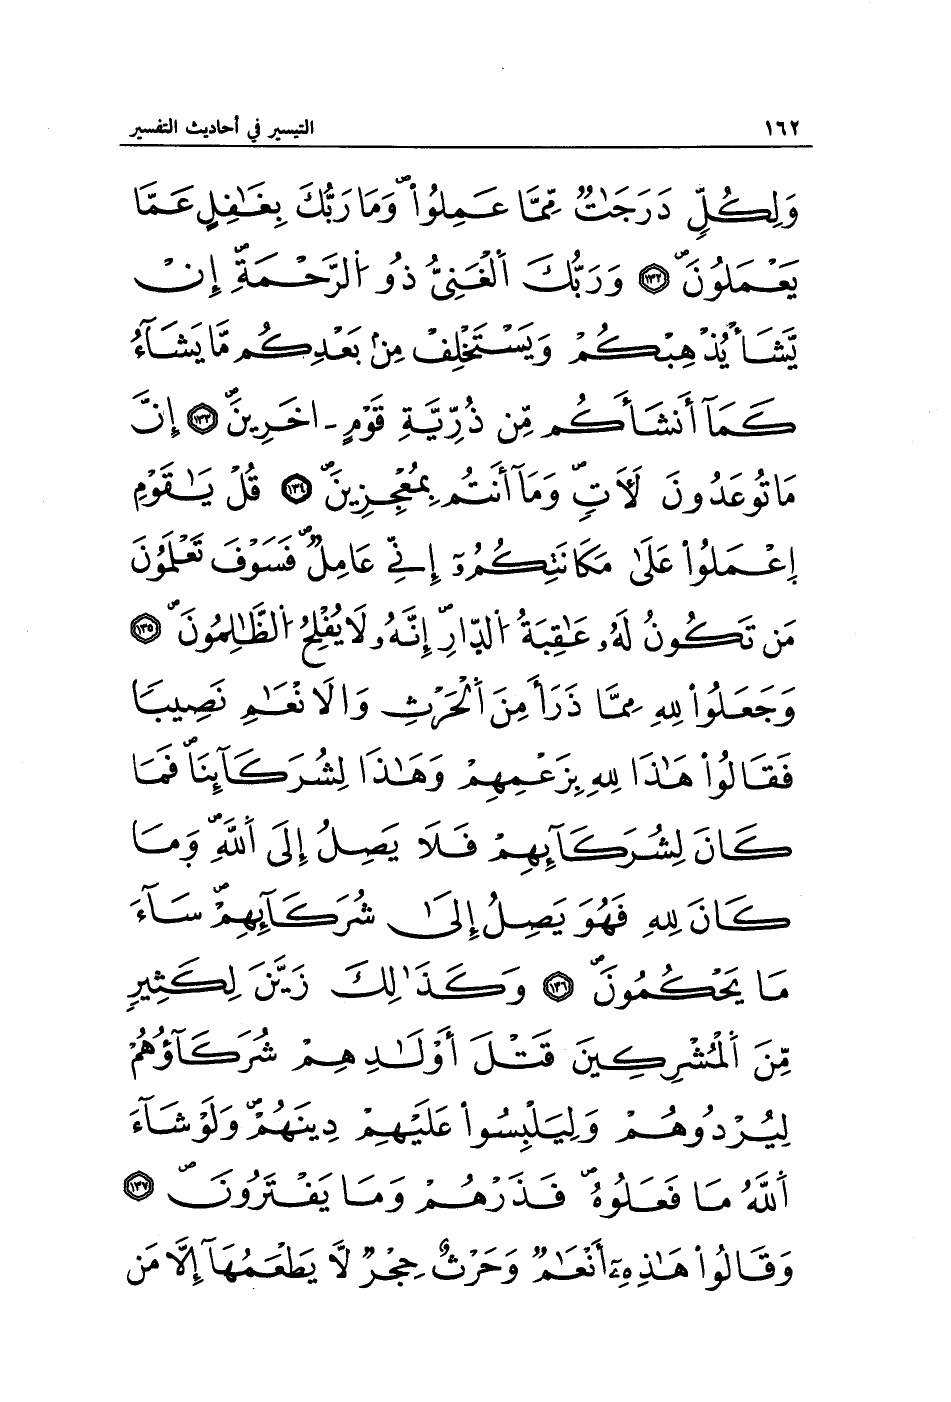 ١٦٢ التيسير في أحاديث التفسير
وَلِكُلٍّ دَرَجَٰتٌ مِّمَّا عَمِلُواْ وَمَا رَبُّكَ بِغَٰفِلٍ عَمَّا
يَعْمَلُونَ ١٣٢ وَرَبُّكَ اَلْغَنِيُّ ذُو اُلرَّحْمَةِ إِنْ
يَّشَأْ يُذْهِبْكُمْ وَيَسْتَخْلِفْ مِنۢ بَعْدِكُم مَّا يَشَآءُ
كَمَآ أَنشَأَكُم مِّن ذُرِّيَّةِ قَوْمٍ ـ اخَرِينَ ١٣٣ إِنَّ
مَا تُوعَدُونَ لَأَتٍ وَمَآ أَنتُم بِمُعْجِزِينَ ١٣٤ قُلْ يَٰقَوْمِ
اِعْمَلُواْ عَلَىٰ مَكَانَتِكُمُۥٓ إِنِّے عَامِلٌ فَسَوْفَ تَعْلَمُونَ
مَن تَكُونُ لَهُۥ عَٰقِبَةُ اُلدِّارِ إِنَّهُۥ لَا يُفْلِحُ اُلظَّٰلِمُونَ ١٣٥
وَجَعَلُواْ لِلهِ مِمَّا ذَرَأَ مِنَ اَلْحَرْثِ وَالَانْعَٰمِ نَصِيبًا
فَقَالُواْ هَٰذَا لِلهِ بِزَعْمِهِمْ وَهَٰذَا لِشُرَكَآئِنَا فَمَا
كَانَ لِشُرَكَآئِهِمْ فَلَا يَصِلُ إِلَى اَللَّهِ وَمَا
كَانَ لِلهِ فَهُوَ يَصِلُ إِلَىٰ شُرَكَآئِهِمْ سَآءَ
مَا يَحْكُمُونَ ١٣٦ وَكَذَٰلِكَ زَيَّنَ لِكَثِيرٍ
مِّنَ اَلْمُشْرِكِينَ قَتْلَ أَوْلَٰدِهِمْ شُرَكَآؤُهُمْ
لِيُرْدُوهُمْ وَلِيَلْبِسُواْ عَلَيْهِمْ دِينَهُمْ وَلَوْ شَآءَ
اَللَّهُ مَا فَعَلُوهُ فَذَرْهُمْ وَمَا يَفْتَرُونَ ١٣٧
وَقَالُواْ هَٰذِهِۦٓ أَنْعَٰمٌ وَحَرْثٌ حِجْرٌ لَّا يَطْعَمُهَآ إِلَّا مَن